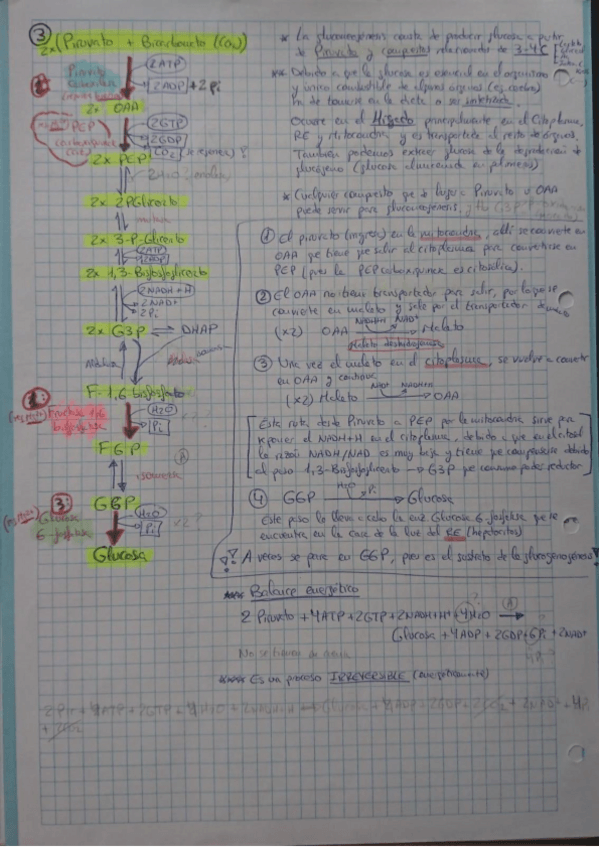 ③
2x (Piruvato + Bicarbonato (CO₂)
Piruvato
carboxilasa
2ATP
2ADP + 2Pi
2x OAA
PEP
carboxiquinasa
2GTP
2GDP
CO₂ se regenera ?
2x PEP
2H₂O
2x 2PGlicerato
mutasa
2x 3-P-Glicerato
2ATP
2ADP
2x 1,3-Bisfosfoglicerato
2NADH+H
2NAD+
2Pi
2x G3P ⇌ DHAP
Aldolasa
isomerasa
F-1,6-bisfosfato
2:
Fructosa 1,6
bisfosfatasa
H₂O
Pi
F6P
isomerasa
3:
G6P
Glucosa
6-fosfatasa
H₂O
Pi
x2?
Glucosa
* La gluconeogénesis consta de producir glucosa a partir
de Piruvato y compuestos relacionados de 3-4C
** Debido a que la glucosa es esencial en el organismo
y único combustible de algunos órganos (ej. cerebro)
ha de tomarse en la dieta o ser sintetizada.
Ocurre en el Hígado principalmente en el Citoplasma,
RE y Mitocondria y es transportada al resto de órganos.
También podemos extraer glucosa de la degradación de
glucógeno (glucosa almacenada en polímeros)
* Cualquier compuesto que de lugar a Piruvato u OAA
puede servir para gluconeogénesis.
① El piruvato ingresa en la mitocondria, allí se convierte en
OAA que tiene que salir al citoplasma para convertirse en
PEP (pues la PEPcarboxiquinasa es citosólica).
② El OAA no tiene transportador para salir, por lo que se
convierte en malato y sale por el transportador de malato
(x2) OAA NADH+H NAD+ → Malato
Malato deshidrogenasa
③ Una vez el malato en el citoplasma, se vuelve a convertir
en OAA y continua
(x2) Malato NAD+ NADH+H → OAA
[Esta ruta desde Piruvato a PEP por la mitocondria sirve para
reponer el NADH+H en el citoplasma, debido a que en el citosol
la razón NADH/NAD es muy baja y tiene que compensarse debido
al paso 1,3-Bisfosfoglicerato → G3P que consume poder reductor]
④ G6P H₂O Pi → Glucosa
Este paso lo lleva a cabo la enz Glucosa 6-fosfatasa que se
encuentra en la cara de la luz del RE (hepatocitos)
¡! A veces se para en G6P, pues es el sustrato de la glucogenogénesis !
*** Balance energético
2 Piruvato + 4ATP + 2GTP + 2NADH+H⁺ + 4H₂O →
Glucosa + 4ADP + 2GDP + 6Pi + 2NAD⁺
**** Es un proceso IRREVERSIBLE (energéticamente)